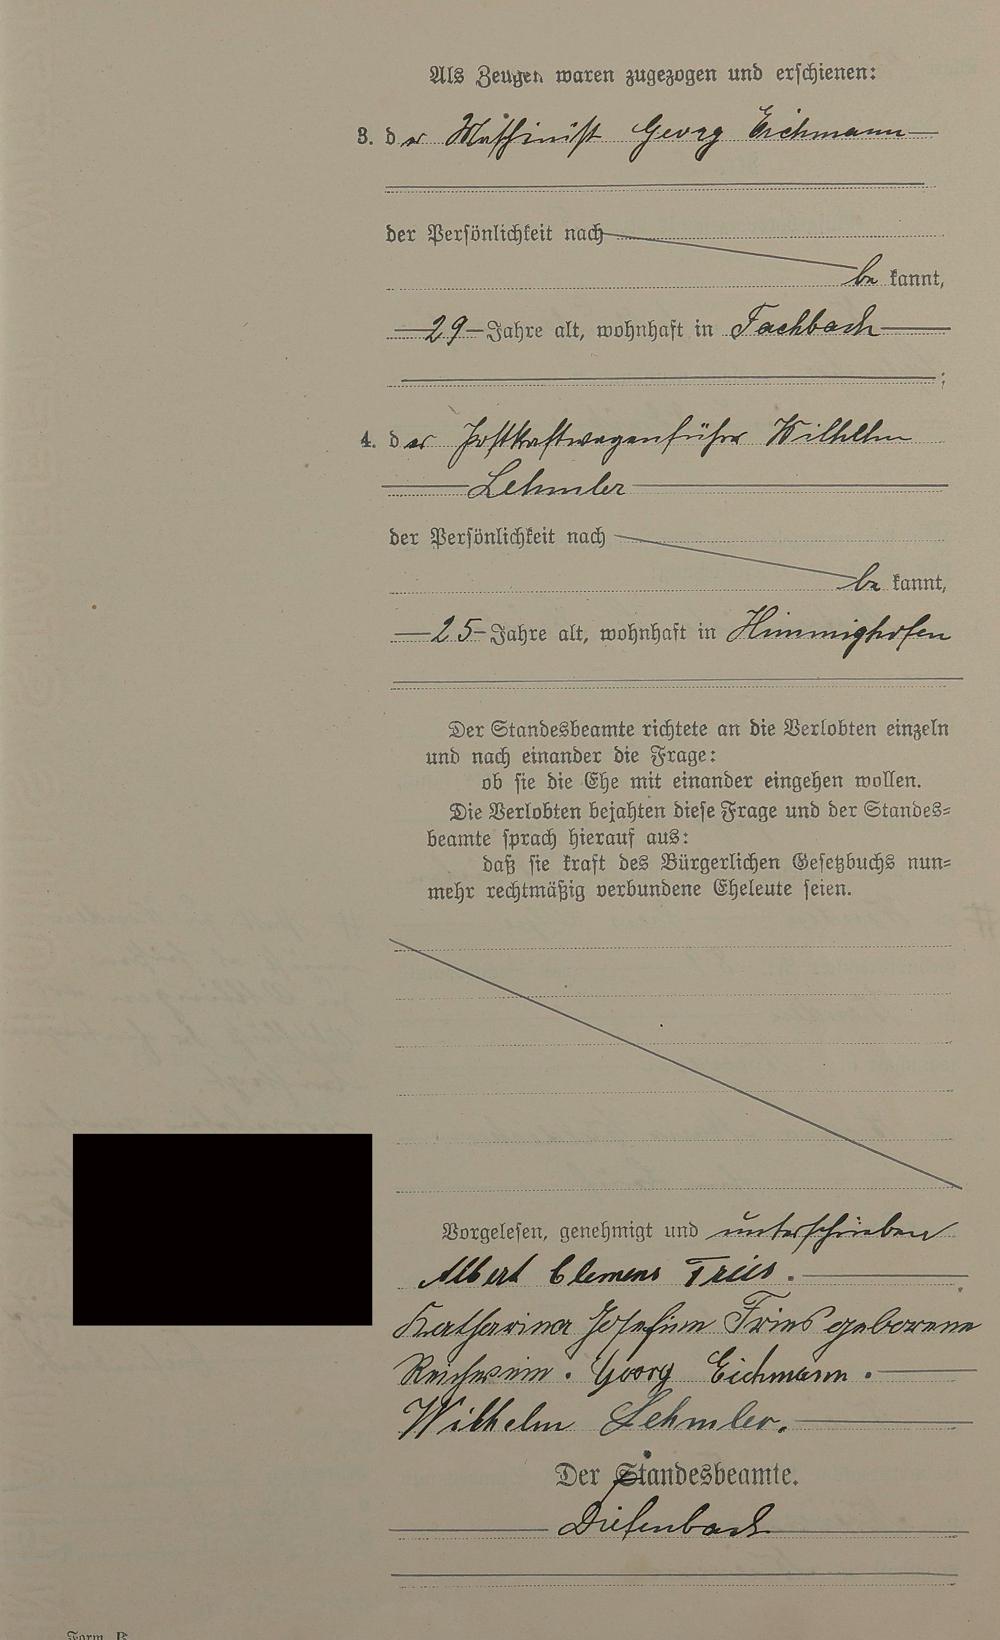 Als Zeugen waren zugezogen und erschienen:
3. der Maschinist Georg Eichmann
der Persönlichkeit nach
be kannt,
29 Jahre alt, wohnhaft in Fachbach
;
4. der Postkraftwagenführer Wilhelm
Lehmler
der Persönlichkeit nach
be kannt,
25 Jahre alt, wohnhaft in Himmighofen
Der Standesbeamte richtete an die Verlobten einzeln
und nach einander die Frage:
ob sie die Ehe mit einander eingehen wollen.
Die Verlobten bejahten diese Frage und der Standes=
beamte sprach hierauf aus:
daß sie kraft des Bürgerlichen Gesetzbuchs nun=
mehr rechtmäßig verbundene Eheleute seien.
Vorgelesen, genehmigt und unterschrieben
Albert Clemens Fries.
Katharina Josefine Fries geborene
Reichwein. Georg Eichmann.
Wilhelm Lehmler.
Der Standesbeamte.
Diefenbach
Form. B.